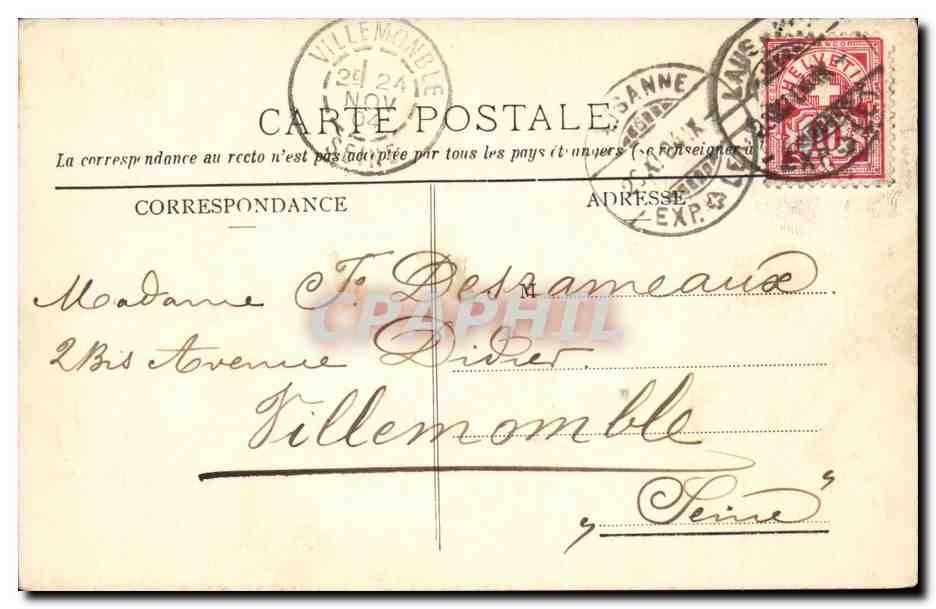 VILLEMOMBLE
2E 24
NOV
04
SEINE
LAUSANNE
EXP.
HELVETIA
FRANCO
10
CARTE POSTALE
La correspondance au recto n'est pas acceptée par tous les pays étrangers (se renseigner à
CORRESPONDANCE
ADRESSE
M
Madame F. Desrameaux
2 Bis Avenue Didier.
Villemomble
„ Seine "
CPAPHIL